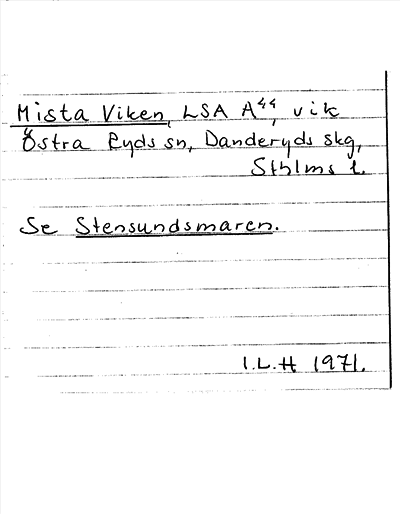 Mista Viken, LSA A⁴⁴, vik
Östra Ryds sn, Danderyds skg,
Sthlms l.
Se Stensundsmaren.
I.L.H 1971.